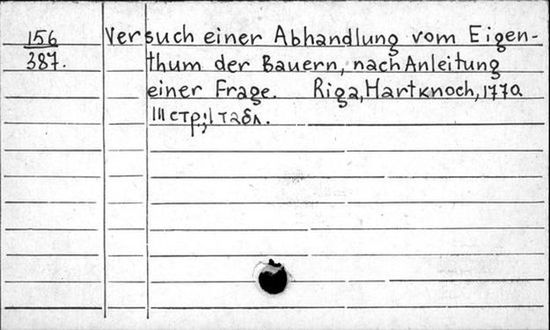 156 Versuch einer Abhandlung vom Eigen-
387. thum der Bauern, nach Anleitung
einer Frage. Riga, Hartknoch, 1770
111 стр.; 1 табл.